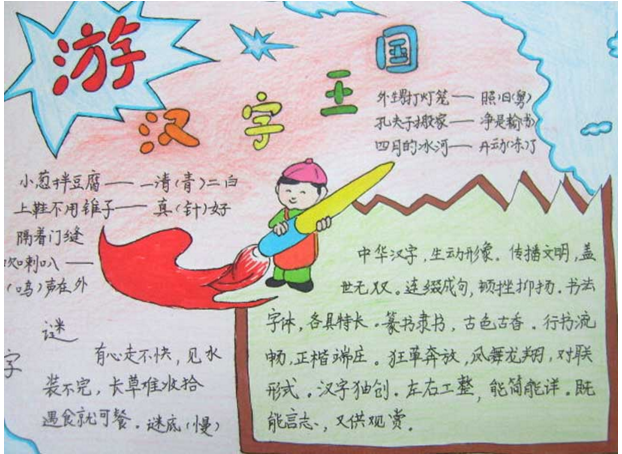 游
汉字王国
外甥打灯笼——照旧(舅)
孔夫子搬家——净是输(书)
四月的冰河——开动(冻)了
小葱拌豆腐——一清(青)二白
上鞋不用锥子——真(针)好
隔着门缝
吹喇叭——
(鸣)声在外
字谜
有心走不快,见水
装不完,长草难收拾
遇食就可餐.谜底(慢)
中华汉字,生动形象.传播文明,盖
世无双.连缀成句,顿挫抑扬.书法
字体,各具特长.篆书隶书,古色古香.行书流
畅,正楷端庄.狂草奔放,凤舞龙翔,对联
形式.汉字独创.左右工整,能简能详.既
能言志,又供观赏.